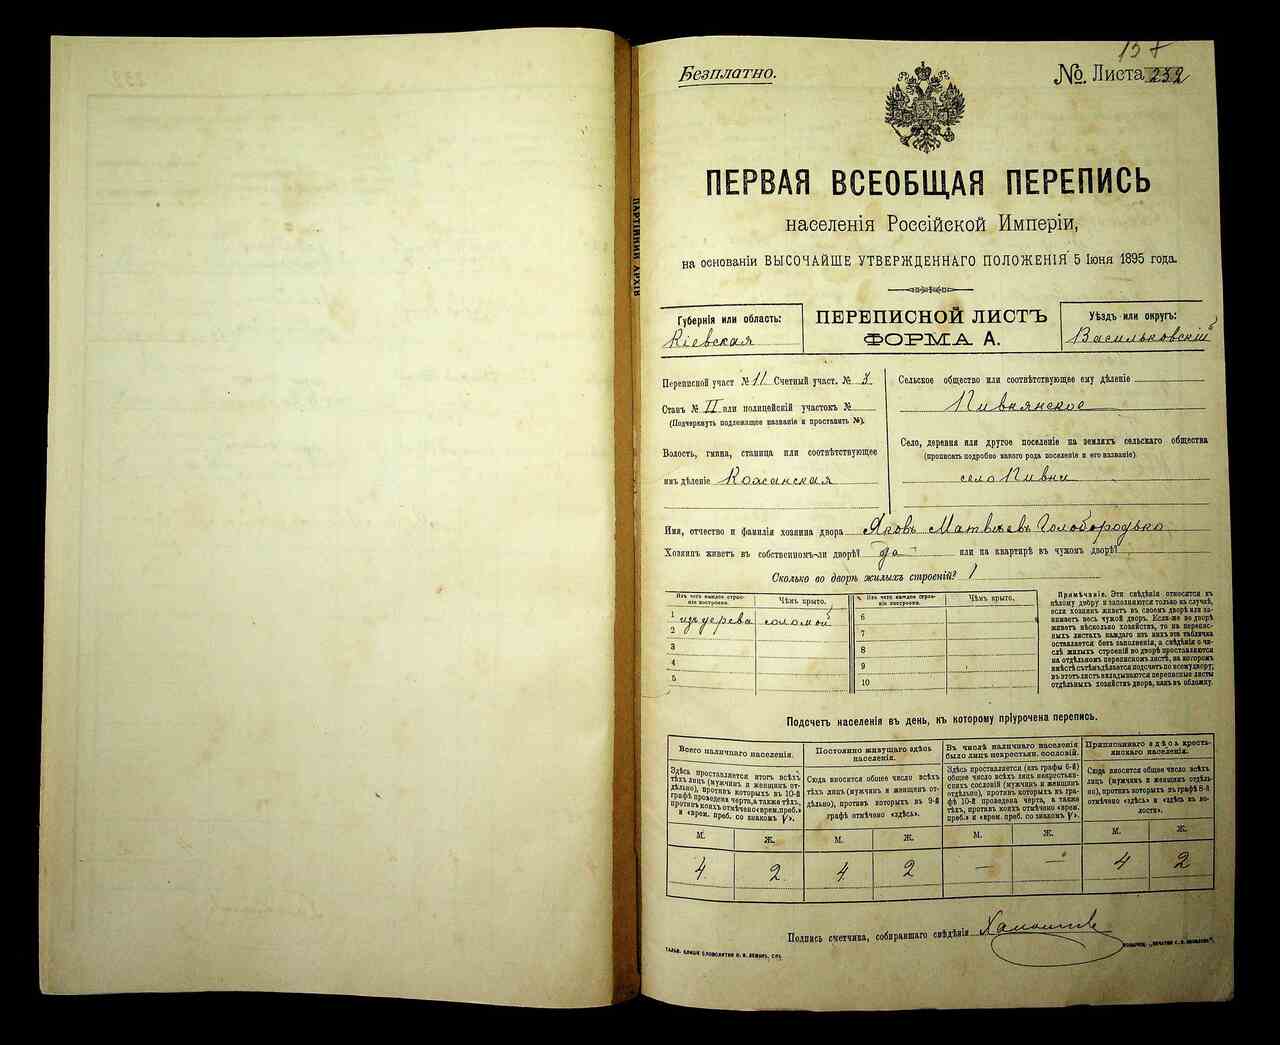 Безплатно.
№ Листа 232
ПЕРВАЯ ВСЕОБЩАЯ ПЕРЕПИСЬ
населенія Россійской Имперіи,
на основаніи ВЫСОЧАЙШЕ УТВЕРЖДЕННАГО ПОЛОЖЕНІЯ 5 Іюня 1895 года.
Губернія или область:
Кіевская
ПЕРЕПИСНОЙ ЛИСТЪ
ФОРМА А.
Уѣздъ или округъ:
Васильковскій
Переписной участ №11 Счетный участ. № 3
Станъ № II или полицейскій участокъ №
(Подчеркнуть подлежащее названіе и проставить №).
Волость, гмина, станица или соотвѣтствующее
имъ дѣленіе Кожанская
Сельское общество или соотвѣтствующее ему дѣленіе
Пивнянское
Село, деревня или другое поселеніе на земляхъ сельскаго общества
(прописать подробно какого рода поселеніе и его названіе)
село Пивни
Имя, отчество и фамилія хозяина двора Яковъ Матвѣевъ Голобородько
Хозяинъ живетъ въ собственномъ-ли дворѣ? да или на квартирѣ въ чужомъ дворѣ?
Сколько во дворѣ жилыхъ строеній? 1
Изъ чего каждое строе-
ніе построено.
Чѣмъ крыто.
1 изъ дерева соломой
2
3
4
5
Изъ чего каждое строе-
ніе построено.
Чѣмъ крыто.
6
7
8
9
10
Примѣчаніе. Эти свѣдѣнія относятся къ
цѣлому двору и заполняются только въ случаѣ,
если хозяинъ живетъ въ своемъ дворѣ или за-
нимаетъ весь чужой дворъ. Если-же во дворѣ
живетъ нѣсколько хозяйствъ, то на перепис-
ныхъ листахъ каждаго изъ нихъ эта табличка
оставляется безъ заполненія, а свѣдѣнія о чи-
слѣ жилыхъ строеній во дворѣ проставляются
на отдѣльномъ переписномъ листѣ, на которомъ
вмѣстѣ съ тѣмъ дѣлается подсчетъ по всему двору;
въ этотъ листъ вкладываются переписные листы
отдѣльныхъ хозяйствъ двора, какъ въ обложку.
Подсчетъ населенія въ день, къ которому пріурочена перепись.
Всего наличнаго населенія.
Здѣсь проставляется итогъ всѣхъ
тѣхъ лицъ (мужчинъ и женщинъ от-
дѣльно), противъ которыхъ въ 10-й
графѣ проведена черта, а также тѣхъ,
противъ коихъ отмѣчено «врем. преб.»
и «врем. преб. со знакомъ V».
М. Ж.
4 2
Постоянно живущаго здѣсь
населенія.
Сюда вносится общее число всѣхъ
тѣхъ лицъ (мужчинъ и женщинъ от-
дѣльно), противъ которыхъ въ 9-й
графѣ отмѣчено «здѣсь».
М. Ж.
4 2
Въ числѣ наличнаго населенія
было лицъ некрестьян. сословій.
Здѣсь проставляется (изъ графы 6-й)
общее число всѣхъ лицъ некрестьян-
скихъ сословій (мужчинъ и женщинъ
отдѣльно), противъ которыхъ въ гра-
фѣ 10-й проведена черта, а также
тѣхъ, противъ коихъ отмѣчено «врем.
преб.» и «врем. преб. со знакомъ V».
М. Ж.
— —
Приписаннаго здѣсь кресть-
янскаго населенія.
Сюда вносится общее число всѣхъ
лицъ (мужчинъ и женщинъ отдѣль-
но), противъ которыхъ въ графѣ 8-й
отмѣчено «здѣсь» и «здѣсь въ во-
лости».
М. Ж.
4 2
Подпись счетчика, собиравшаго свѣдѣнія
ПАРТІЙНИЙ АРХІВ